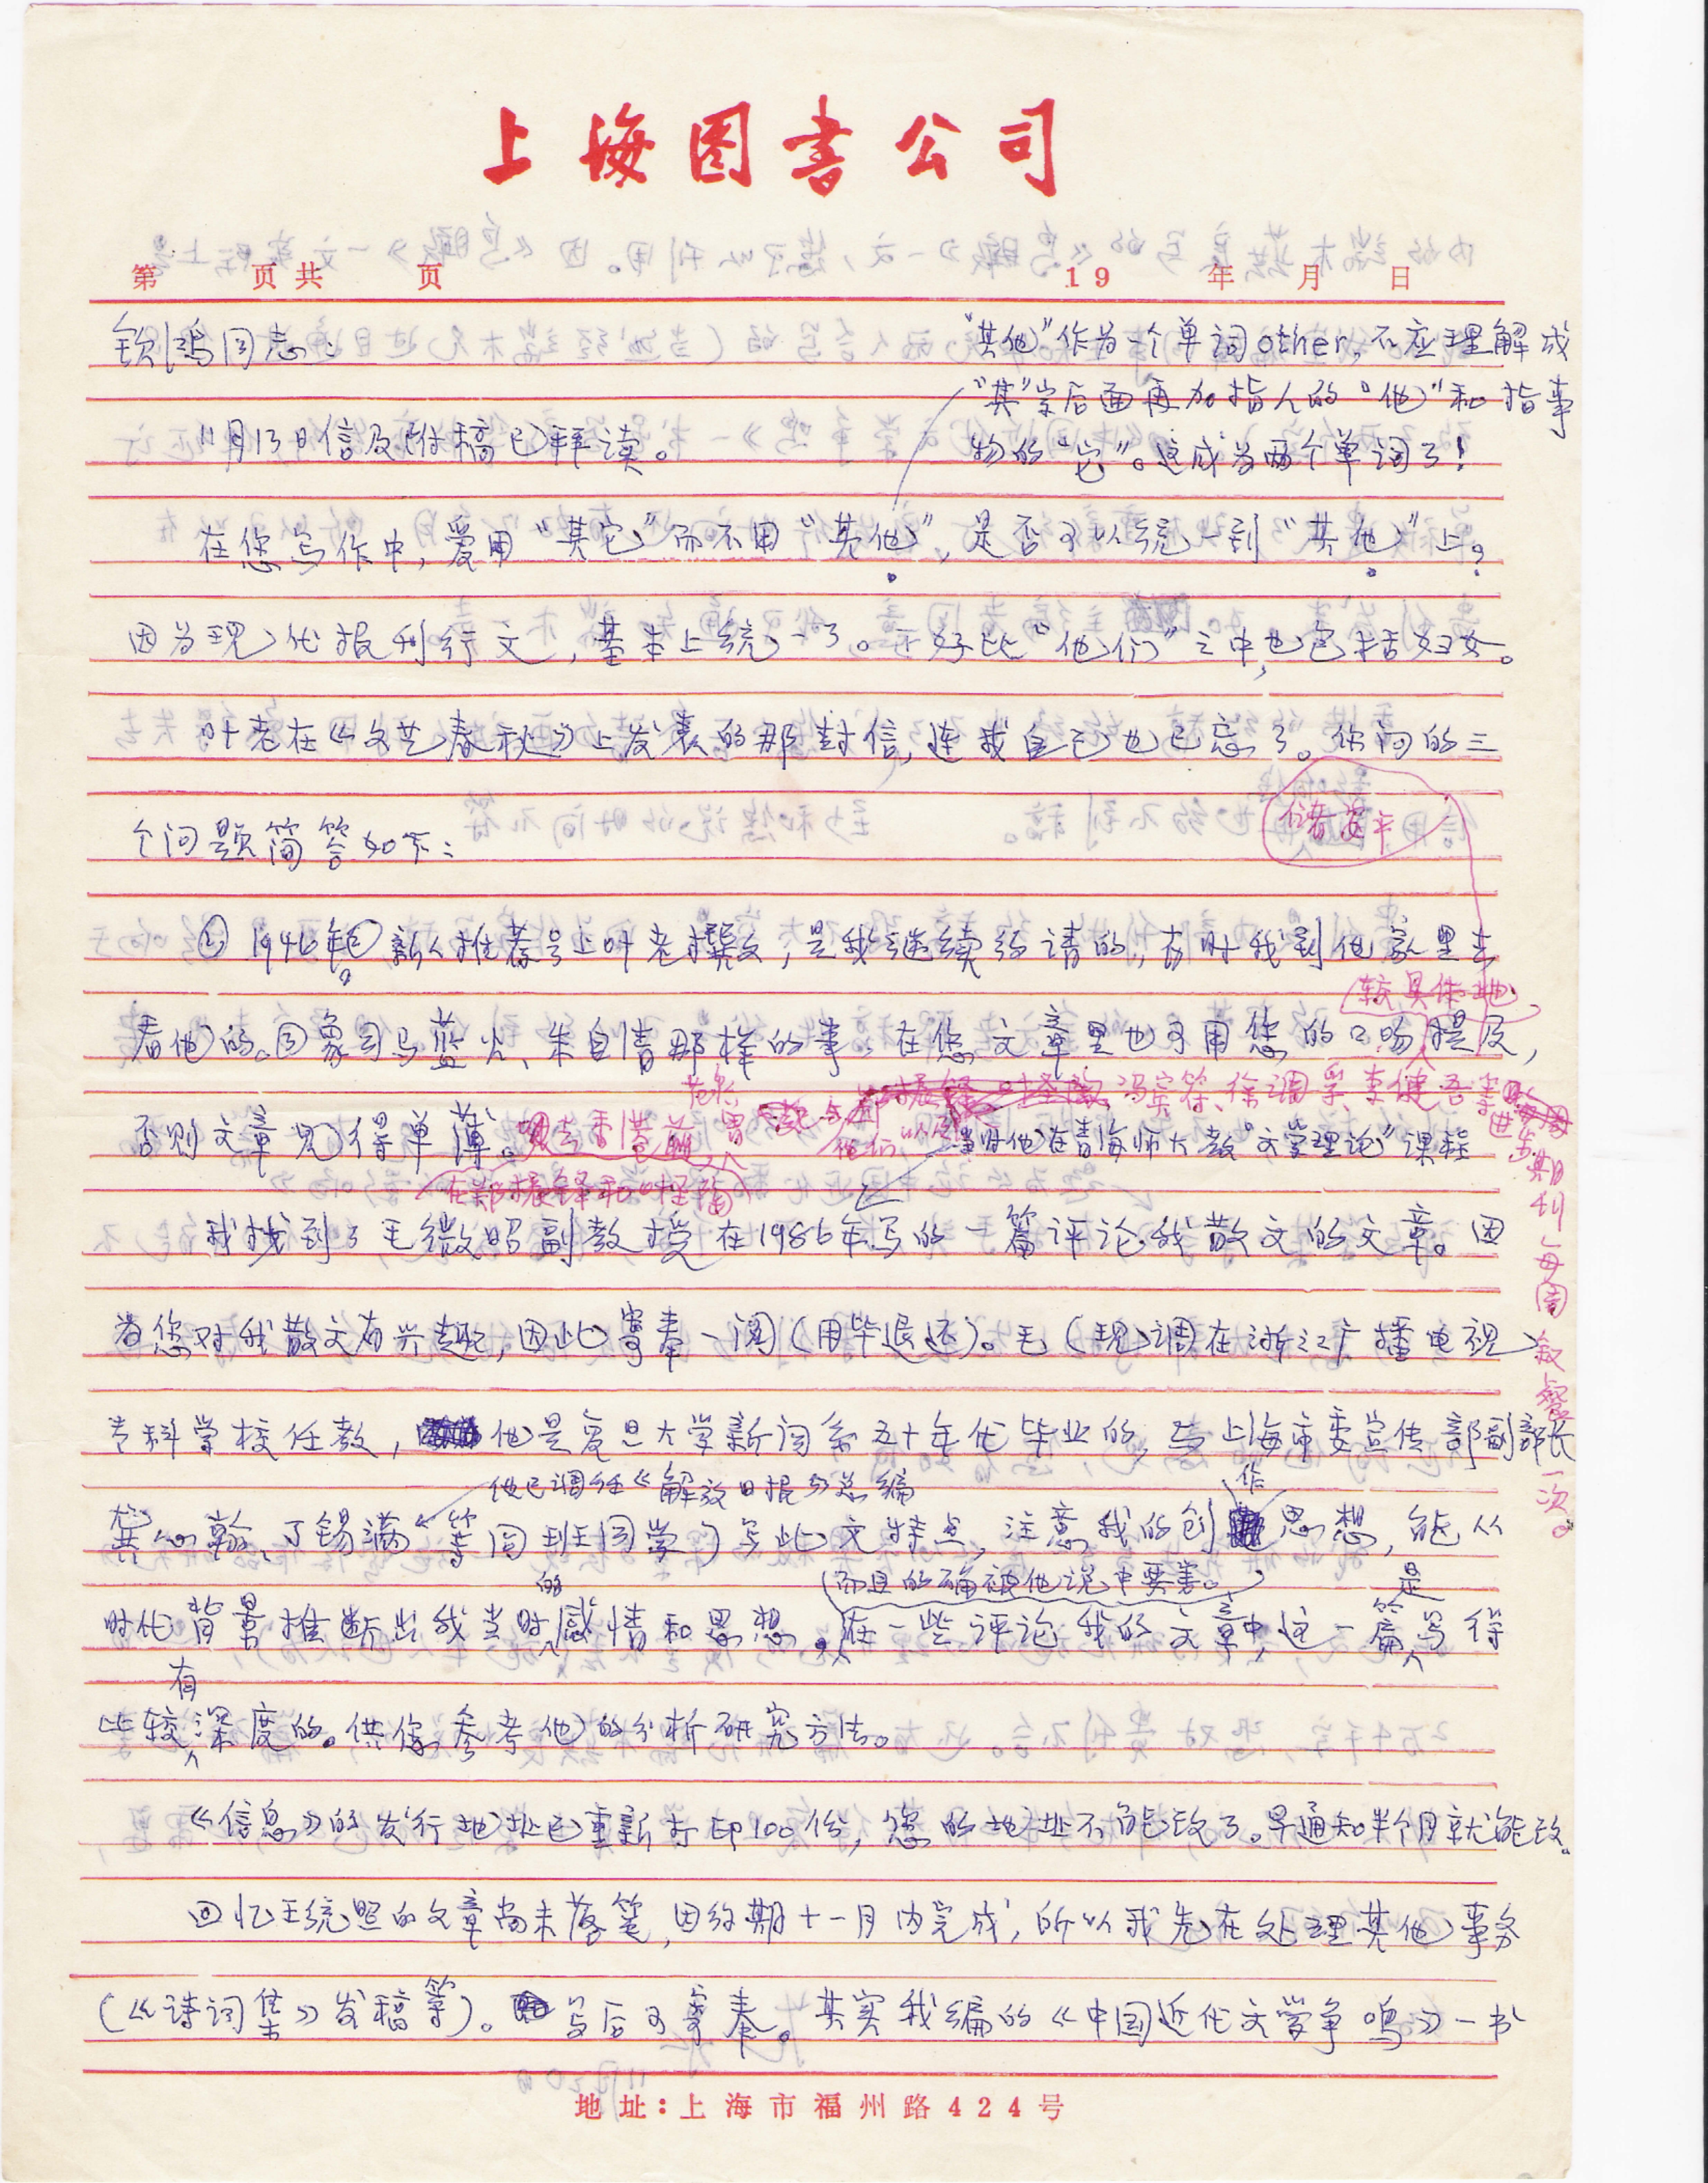 上海图书公司
第 页共 页 19 年 月 日
钦鸿同志:
"其他"作为一个单词other,不应理解成
"其"字后面再加指人的"他"和指事
物的"它"。这成为两个单词了!
11月13日信及附稿已拜读。
在您写作中,爱用"其它"而不用"其他",是否可以统一到"其他"上?
因为现代报刊行文,基本上统一了。正好比"他们"之中,也包括妇女。
叶老在《文艺春秋》上发表的那封信,连我自己也已忘了。你问的三
个问题简答如下:
储安平
① 1946年 新人推荐号上叶老撰文,是我继续约请的,有时我到他家里去
较具体地
看他的。因象司马蓝火、朱自清那样的事,在您文章里也可用您的口吻提及,
冯宾符、徐调孚、李健吾等
否则文章见得单薄。去香港前,曾
他们以
当时他在青海师大教"文学理论"课程
在郑振铎和
进步期刊每周叙餐一次。
我找到了毛微昭副教授在1986年写的一篇评论我散文的文章。因
为您对我散文有兴趣,因此寄奉一阅(用毕退还)。毛(现调在浙江广播电视
专科学校任教,他是复旦大学新闻系五十年代毕业的,与上海市委宣传部副部长
他已调任《解放日报》总编
作
龚心瀚、丁锡满等同班同学)写此文特点,注意我的创思想,能从
的
(而且的确被他说中要害。)
是
时代背景推断出我当时感情和思想。在一些评论我的文章中,这一篇写得
有
比较深度的。供您参考他的分析研究方法。
《信息》的发行地址已重新打印100份,您的地址不能改了。早通知半个月就能改。
回忆王统照的文章尚未落笔,因约期十一月内完成,所以我先在处理其他事务
(《诗词集》发稿等)。写后可寄奉。其实我编的《中国近代文学争鸣》一书
地址:上海市福州路424号